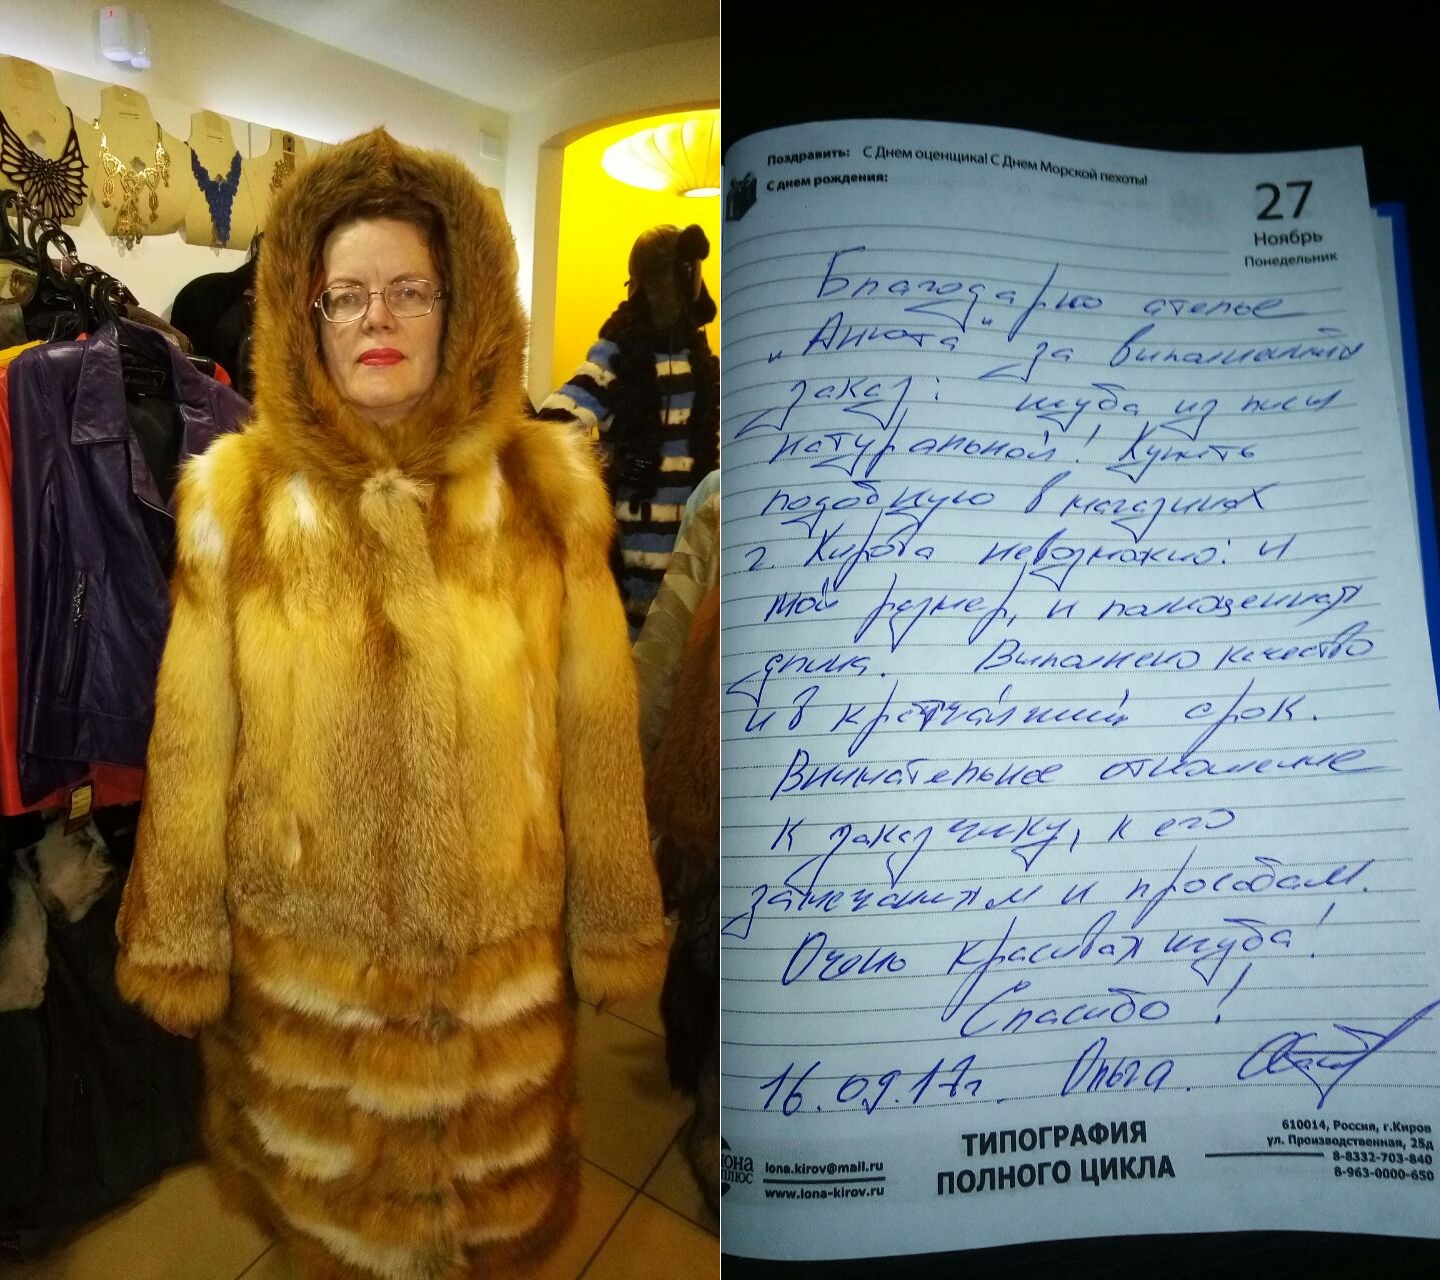 Поздравить: С Днем оценщика! С Днем Морской пехоты!
С днем рождения:
27
Ноябрь
Понедельник
Благодарю ателье
"Анюта" за выполненный
заказ: шуба из лисы
натуральной! Купить
подобную в магазинах
г. Кирова невозможно: и
мой размер, и полноценная
длина. Выполнено качество
и в кратчайший срок.
Внимательное отношение
к заказчику, к его
замечаниям и просьбам.
Очень красивая шуба!
Спасибо!
16.09.17г. Ольга.
лона
плюс
lona.kirov@mail.ru
www.lona-kirov.ru
ТИПОГРАФИЯ
ПОЛНОГО ЦИКЛА
610014, Россия, г.Киров
ул. Производственная, 25д
8-8332-703-840
8-963-0000-650